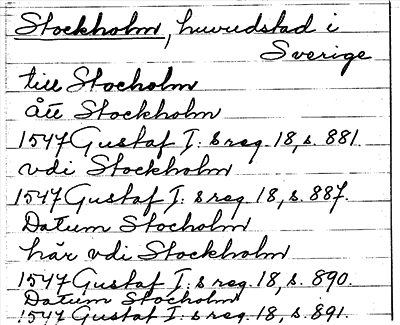 Stockholm, huvudstad i
Sverige
till Stocholm
ått Stockholm
1547 Gustaf I: s reg. 18, s. 881.
vdi Stockholm
1547 Gustaf I: s reg. 18, s. 887.
Datum Stocholm
här vdi Stockholm
1547 Gustaf I: s reg. 18, s. 890.
Datum Stocholm
1547 Gustaf I: s reg. 18, s. 891.